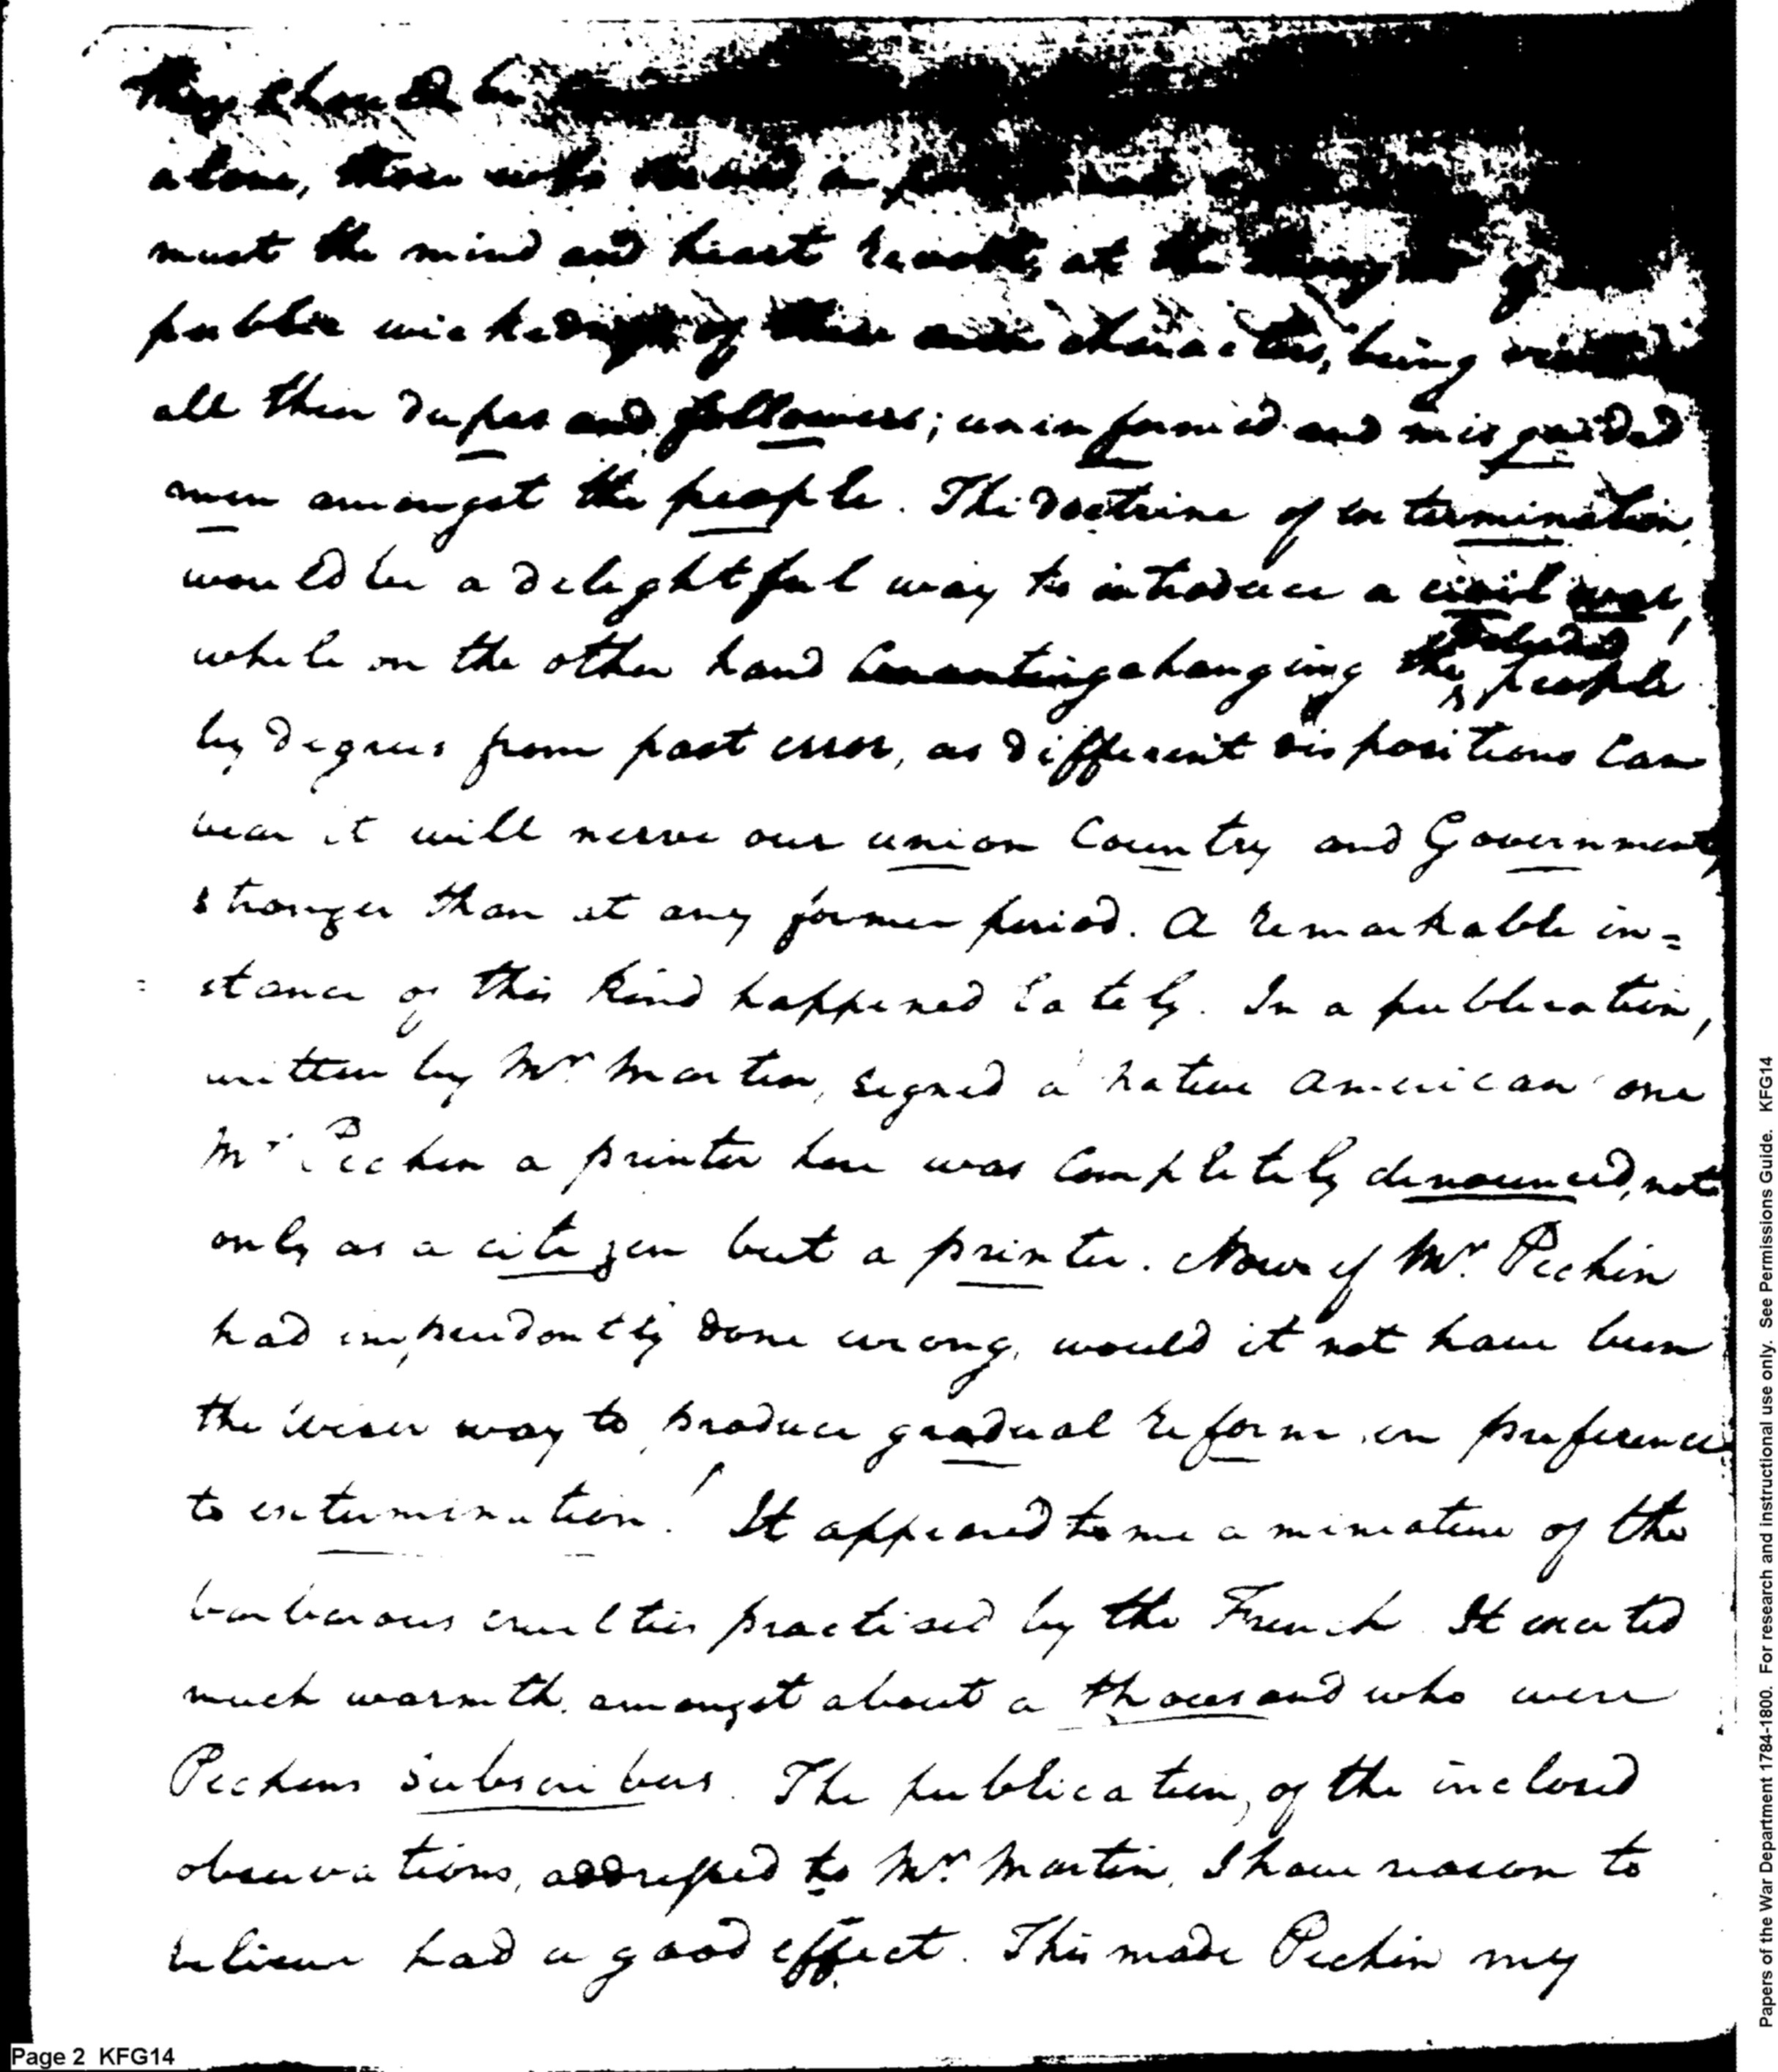 they should be
alone, those who
must the mind and heart revolt, at the
public wickedness of these characters, being
all their dupes and followers; uninformed and misguided
men amongst the people. The doctrine of extermination,
would be a delightful way to introduce a civil war,
while on the other hand changing the deluded people
by degrees from past error, as different dispositions can
bear it will nerve our union Country and Government,
stronger than at any former period. A remarkable in=
=stance of this kind happened lately. In a publication,
written by Mr. Martin, signed a native American one
Mr. Pechin a printer here was completely denounced, not
only as a citizen but a printer. Now if Mr. Pechin
had impudently done wrong, would it not have been
the wiser way to produce gradual reform in preference
to extermination! It appeared to me a miniature of the
barbarous cruelties practised by the French. It excited
much warmth, amongst about a thousand who were
Pechins Subscribers. The publication, of the inclosed
observations, addressed to Mr. Martin, I have reason to
believe had a good effect. This made Pechin my
Page 2 KFG14
Papers of the War Department 1784-1800. For research and instructional use only. See Permissions Guide. KFG14